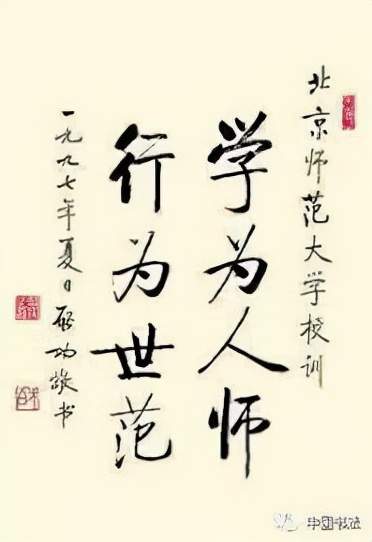 北京师范大学校训
学为人师
行为世范
一九九七年夏日 启功敬书
中国书法